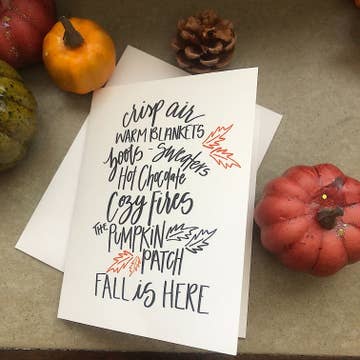 crisp air
WARM BLANKETS
boots - Sweaters
Hot Chocolate
Cozy fires
THE PUMPKIN
PATCH
FALL is HERE